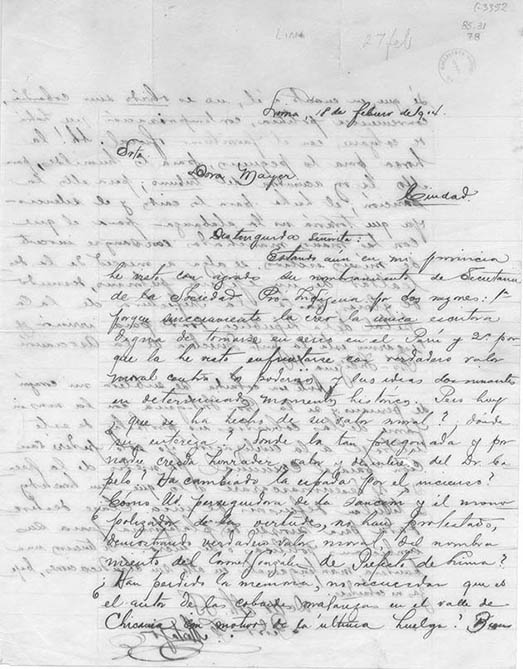 C-3352
BS. 31
78
LIMA
27 feb
Lima, 18 de febrero de 914.
Srta
Dora Mayer
Ciudad.
Distinguida Señorita:
Estando aun en mi provincia
he visto con agrado su nombramiento de Secretaria
de la Sociedad Pro-Indígena por dos razones: 1ª
porque sinceramente la creo la única escritora
digna de tomarse en serio en el Perú y 2ª por
que la he visto enfrentarse con verdadero valor
moral contra los poderes y las ideas dominantes
en determinados momentos históricos. Pero hoy
¿que se ha hecho de su valor moral?, donde
su entereza? donde la tan pregonada y por
nadie creida honradez, valor y del Dr. Ca
pelo? Ha cambiado la espada por el incienso?
¿Como Ud. perseguidora de la sanción y el mono
polizador de las virtudes, no han protestado,
demostrando verdadero valor moral, del nombra
miento del Coronel González de Prefecto de Lima?
¿Han perdido la memoria, no recuerdan que es
el autor de las cobardes matanzas en el valle de
Chicama con motivo de la última huelga?